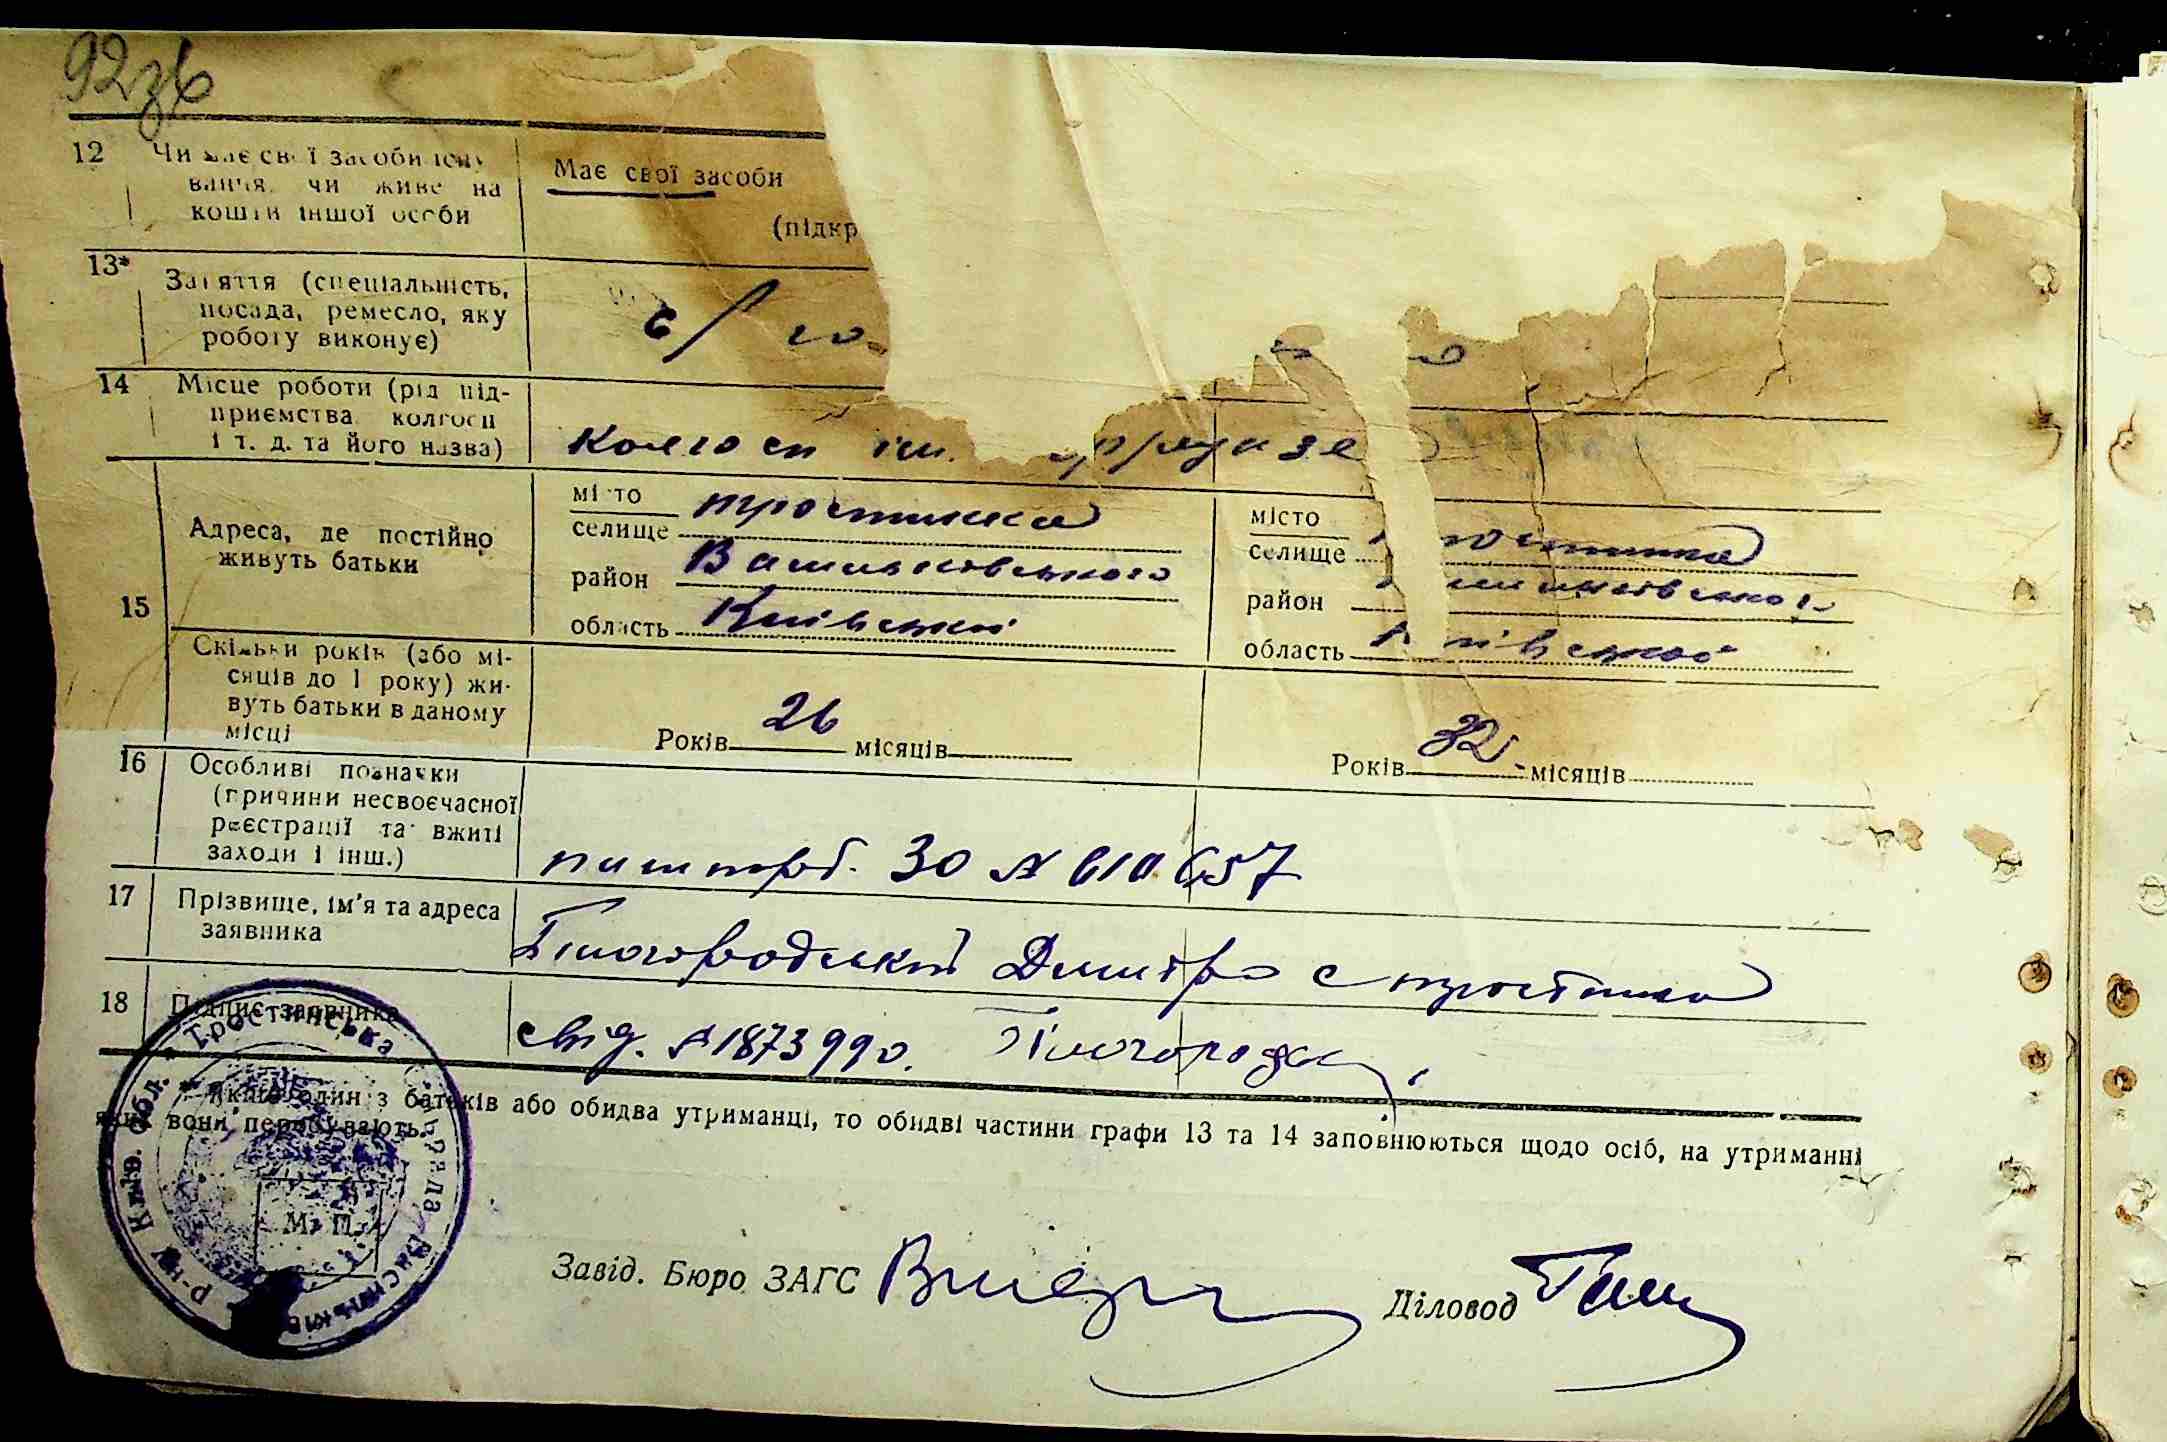 92зв
12 Чи має свої засоби існу-
вання, чи живе на
кошти іншої особи
Має свої засоби
(підкр
13* Заняття (спеціальність,
посада, ремесло, яку
роботу виконує)
с/го
14 Місце роботи (рід під-
приємства, колгосп
і т. д. та його назва)
Колгосп ім.
15 Адреса, де постійно
живуть батьки
місто
селище Тростинка
район Васильківського
область Київської
місто
селище
район
область
Скільки років (або мі-
сяців до 1 року) жи-
вуть батьки в даному
місці
Років 26 місяців
Років 32 місяців
16 Особливі позначки
(причини несвоєчасної
реєстрації та вжиті
заходи і інш.)
17 Прізвище, ім'я та адреса
заявника
Білогородський Дмитро с Тростинка
18 Підпис заявника
свід. № 1873990.
* Якщо один з батьків або обидва утриманці, то обидві частини графи 13 та 14 заповнюються щодо осіб, на утриманні
яких вони перебувають.
Тростинська
р-ну Київ. Обл.
М. П.
Завід. Бюро ЗАГС
Діловод